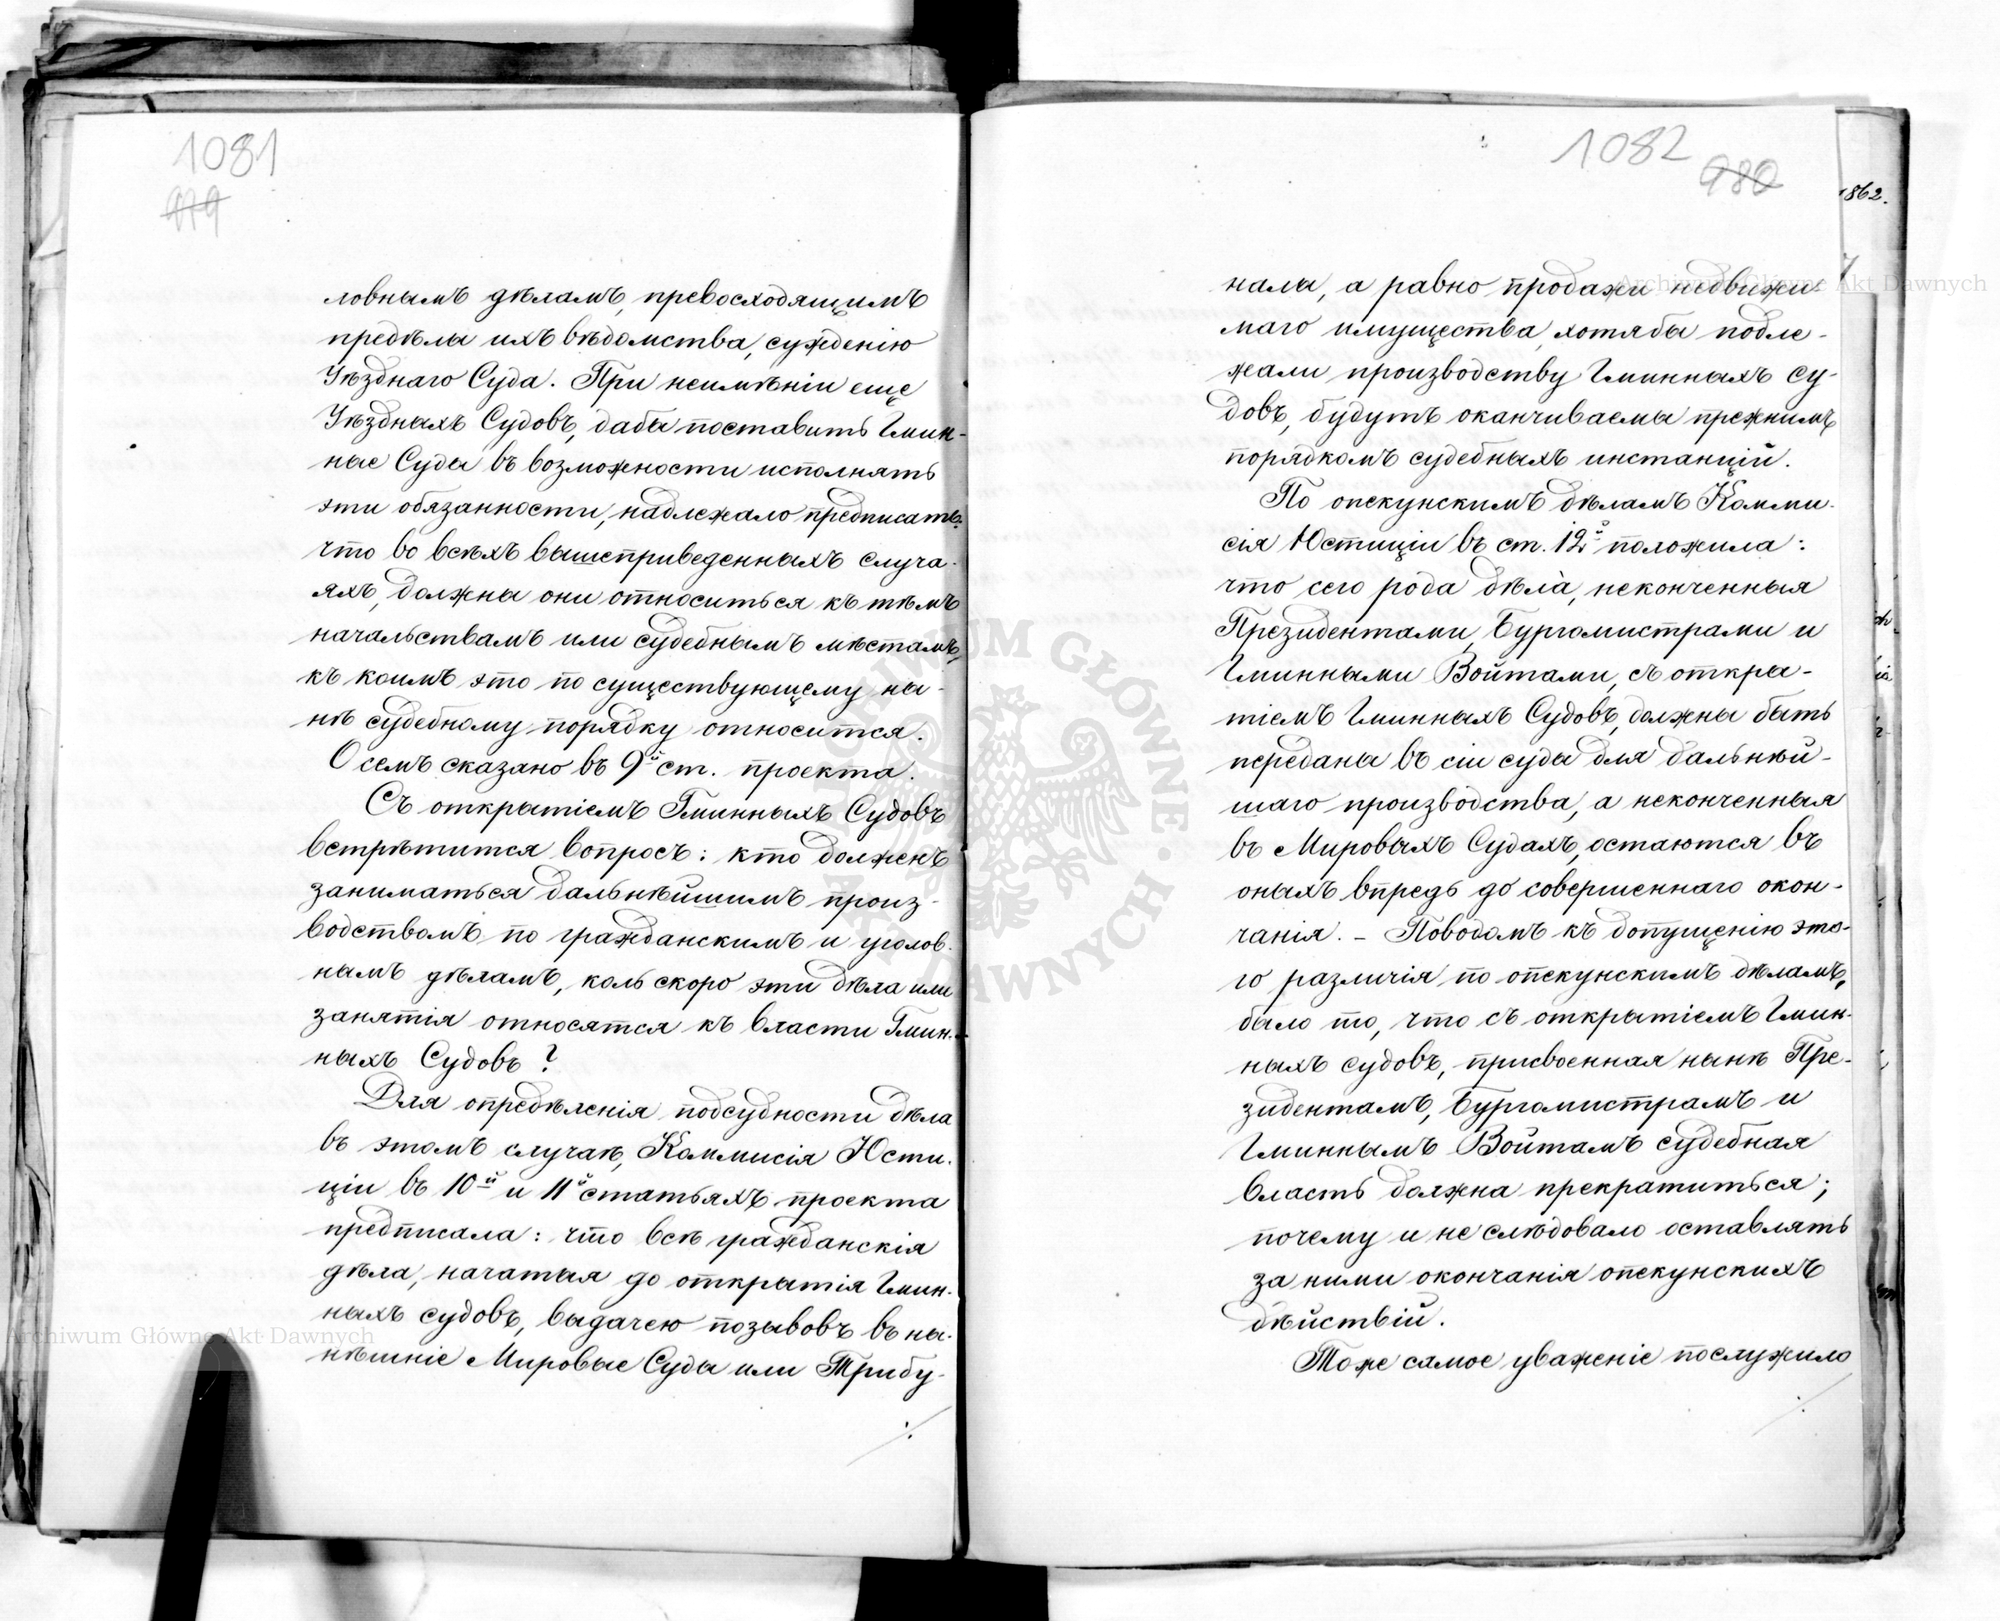 1081
979
ловнымъ дѣламъ, превосходящимъ
предѣлы ихъ вѣдомства, сужденію
Уѣзднаго Суда. При неимѣніи еще
Уѣздныхъ Судовъ, дабы поставить Гмин-
ные Суды въ возможности исполнять
эти обязанности, надлежало предписать:
что во всѣхъ вышеприведенныхъ случа-
яхъ, должны они относиться къ тѣмъ
начальствамъ или судебнымъ мѣстамъ,
къ коимъ это по существующему ны-
нѣ судебному порядку относится.
О семъ сказано въ 9й ст. проекта.
Съ открытіемъ Гминныхъ Судовъ
встрѣтится вопросъ: кто долженъ
заниматься дальнѣйшимъ произ-
водствомъ по гражданскимъ и уголов-
нымъ дѣламъ, коль скоро эти дѣла или
занятія относятся къ власти Гмин-
ныхъ Судовъ?
Для опредѣленія подсудности дѣла
въ этомъ случаѣ, Коммисія Юсти-
ціи въ 10й и 11й статьяхъ проекта
предписала: что всѣ гражданскія
дѣла, начатыя до открытія Гмин-
ныхъ судовъ, выдачею позывовъ въ ны-
нѣшніе Мировые Суды или Трибу-
1082
980
1862.
налы, а равно продажи недвижи-
маго имущества, хотябы подле-
жали производству Гминныхъ Су-
довъ, будутъ оканчиваемы прежнимъ
порядкомъ судебныхъ инстанцій.
По опекунскимъ дѣламъ Комми-
сія Юстиціи въ ст. 12й положила:
что сего рода дѣла, неконченныя
Президентами, Бургомистрами и
Гминными Войтами, съ откры-
тіемъ Гминныхъ Судовъ, должны быть
переданы въ сіи суды для дальнѣй-
шаго производства, а неконченныя
въ Мировыхъ Судахъ, остаются въ
оныхъ впредь до совершеннаго окон-
чанія. – Поводомъ къ допущенію это-
го различія по опекунскимъ дѣламъ,
было то, что съ открытіемъ Гмин-
ныхъ судовъ, присвоенная нынѣ Пре-
зидентамъ, Бургомистрамъ и
Гминнымъ Войтамъ судебная
власть должна прекратиться;
почему и не слѣдовало оставлять
за ними окончанія опекунскихъ
дѣйствій.
Тоже самое уваженіе послужило
Archiwum Główne Akt Dawnych
ARCHIWUM GŁÓWNE AKT DAWNYCH
Archiwum Główne Akt Dawnych